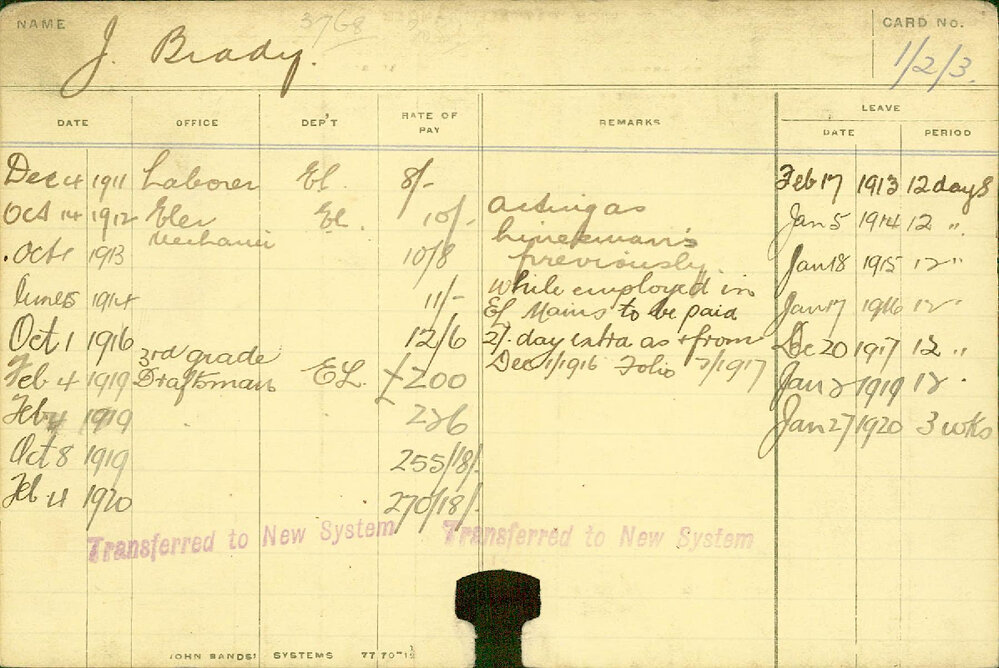 NAME
3768
CARD No.
J. Brady.
1/2/3.
DATE OFFICE DEP'T RATE OF PAY REMARKS LEAVE
DATE PERIOD
Dec 4 1911 Laborer El. 8/- Feb 17 1913 12 days
Oct 14 1912 Elec Mechanic El. 10/- acting as Jan 5 1914 12 "
Oct 1 1913 10/8 Linesman's previously. Jan 18 1915 12 "
June 5 1914 11/- while employed in Jan 17 1916 12 "
El Mains to be paid
Oct 1 1916 12/6 2/- day extra as & from Dec 20 1917 12 "
Feb 4 1919 3rd grade Draftsman EL. £200 Dec 1/1916 Folio 7/1917 Jan 2 1919 12 "
Feb 4 1919 226 Jan 27 1920 3 wks
Oct 8 1919 255/18/-
Feb 4 1920 270/18/-
Transferred to New System Transferred to New System
JOHN SANDS' SYSTEMS